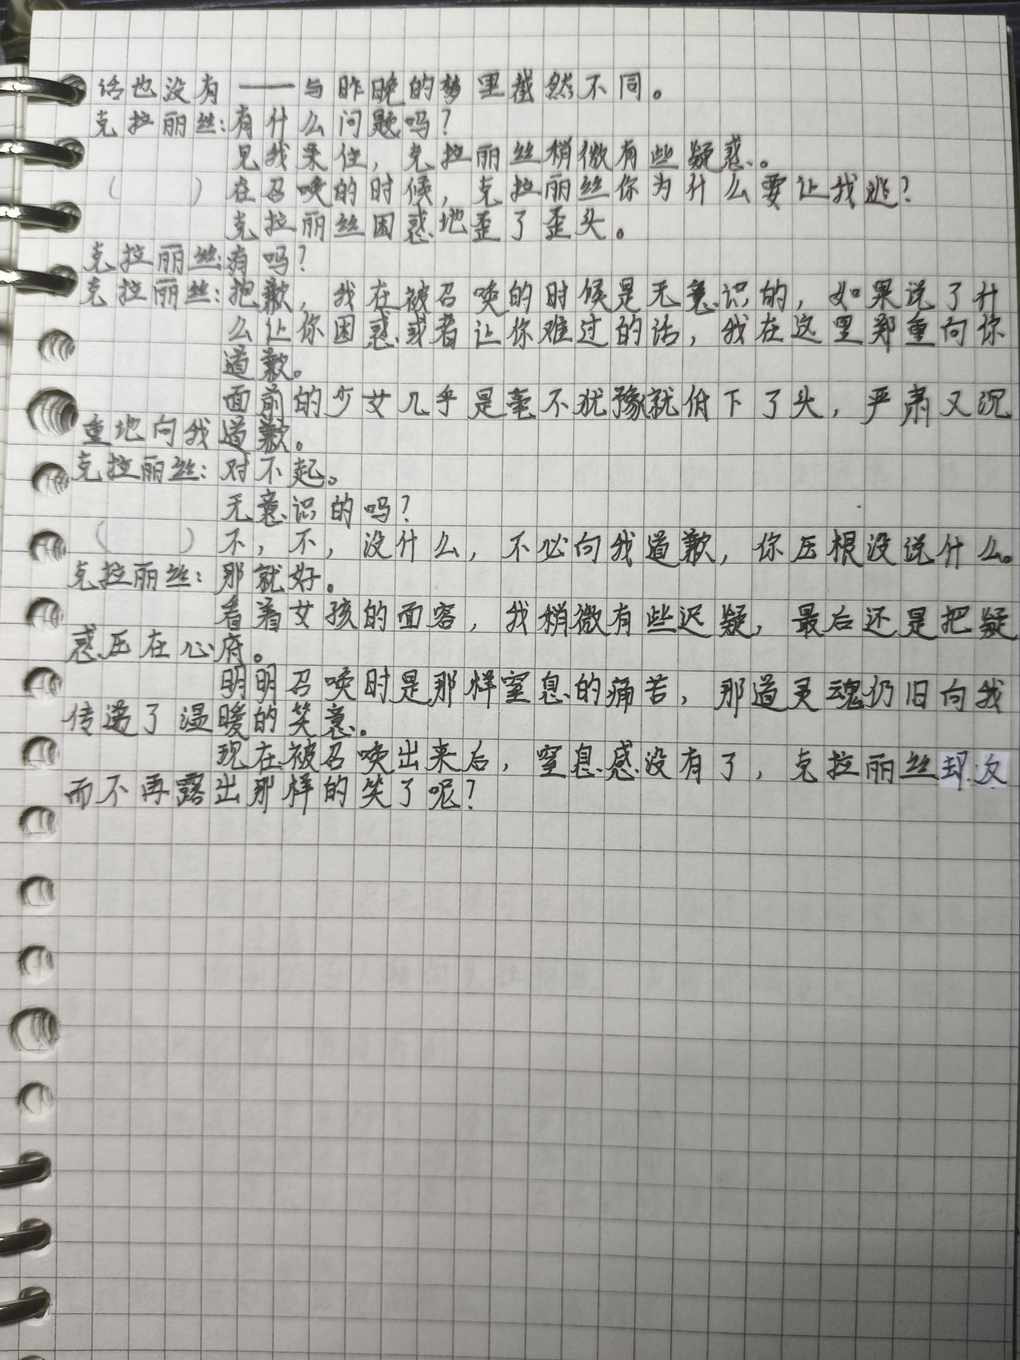 话也没有——与昨晚的梦里截然不同。
克拉丽丝:有什么问题吗?
见我呆住，克拉丽丝稍微有些疑惑。
( )在召唤的时候，克拉丽丝你为什么要让我逃?
克拉丽丝困惑地歪了歪头。
克拉丽丝:有吗?
克拉丽丝:抱歉，我在被召唤的时候是无意识的，如果说了什
么让你困惑或者让你难过的话，我在这里郑重向你
道歉。
面前的少女几乎是毫不犹豫就低下了头，严肃又沉
重地向我道歉。
克拉丽丝:对不起。
无意识的吗?
( )不，不，没什么，不必向我道歉，你压根没说什么。
克拉丽丝:那就好。
看着女孩的面容，我稍微有些迟疑，最后还是把疑
惑压在心府。
明明召唤时是那样窒息的痛苦，那道灵魂仍旧向我
传递了温暖的笑意。
现在被召唤出来后，窒息感没有了，克拉丽丝却反
而不再露出那样的笑了呢?